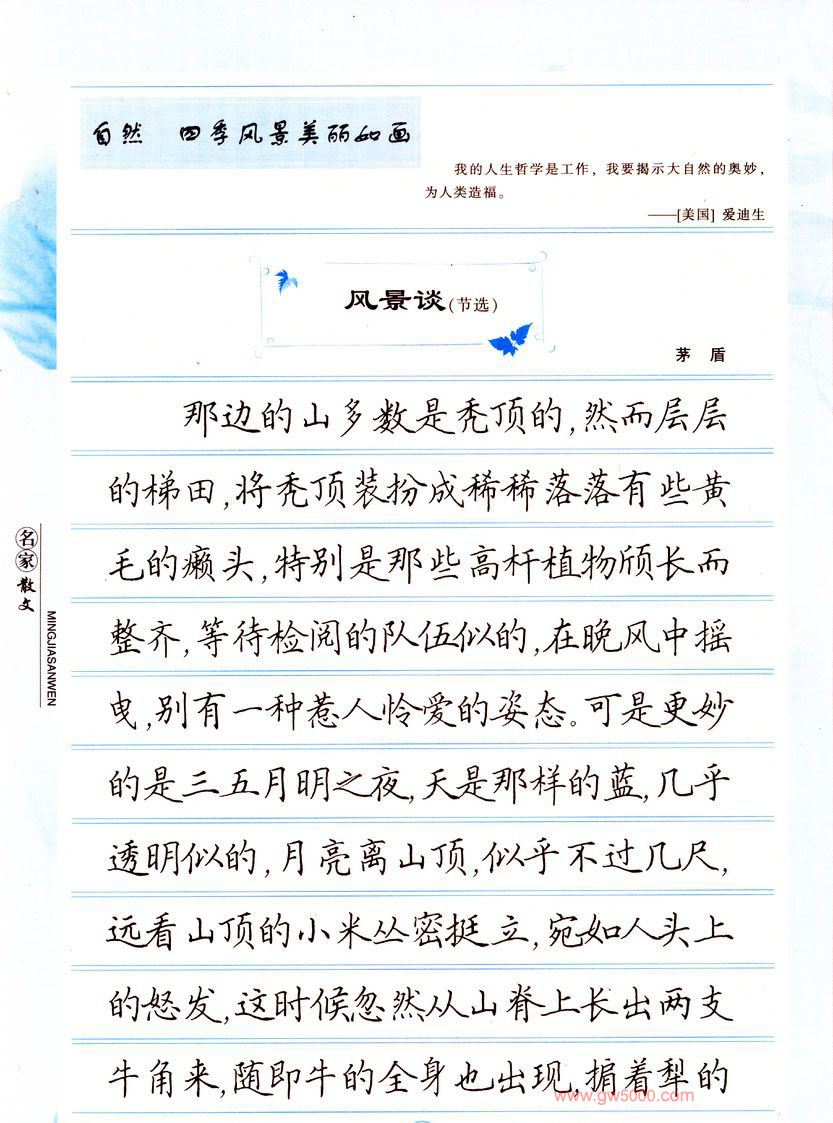 自然 四季风景美丽如画
我的人生哲学是工作，我要揭示大自然的奥妙，
为人类造福。
——[美国] 爱迪生
风景谈(节选)
茅 盾
那边的山多数是秃顶的,然而层层
的梯田,将秃顶装扮成稀稀落落有些黄
毛的癞头,特别是那些高杆植物颀长而
整齐,等待检阅的队伍似的,在晚风中摇
曳,别有一种惹人怜爱的姿态。可是更妙
的是三五月明之夜,天是那样的蓝,几乎
透明似的,月亮离山顶,似乎不过几尺,
远看山顶的小米丛密挺立,宛如人头上
的怒发,这时候忽然从山脊上长出两支
牛角来,随即牛的全身也出现,掮着犁的
名家散文
MINGJIASANWEN
www.gw5000.com